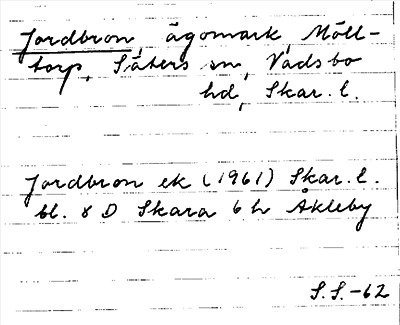 Jordbron, ägomark, Möll-
torp, Säters sn, Vadsbo
hd, Skar. l.
Jordbron ek (1961) Skar. l.
bl. 8 D Skara 6 h Åkleby
S.S.-62